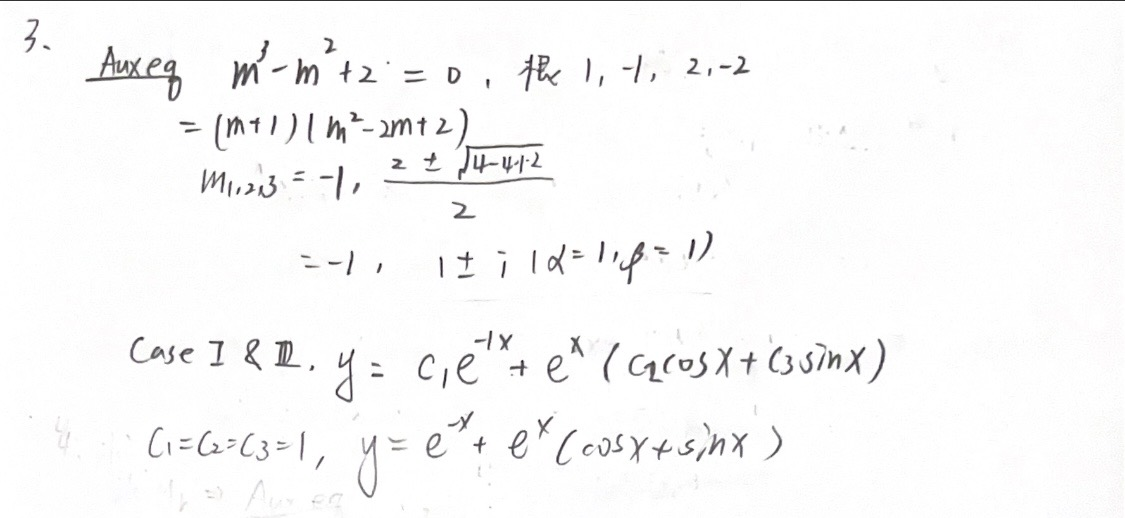 3.
Aux eq m³-m²+2 = 0, 根 1, -1, 2, -2
= (m+1)(m²-2m+2)
m1,2,3 = -1, (2 ± √(4-4·1·2))/2
= -1, 1 ± i (α=1, β=1)
Case I & III. y = c₁e^(-1x) + eˣ (c₂cosx + c₃sinx)
C₁=C₂=C₃=1, y = e^(-x) + eˣ (cosx + sinx)
Aux eq